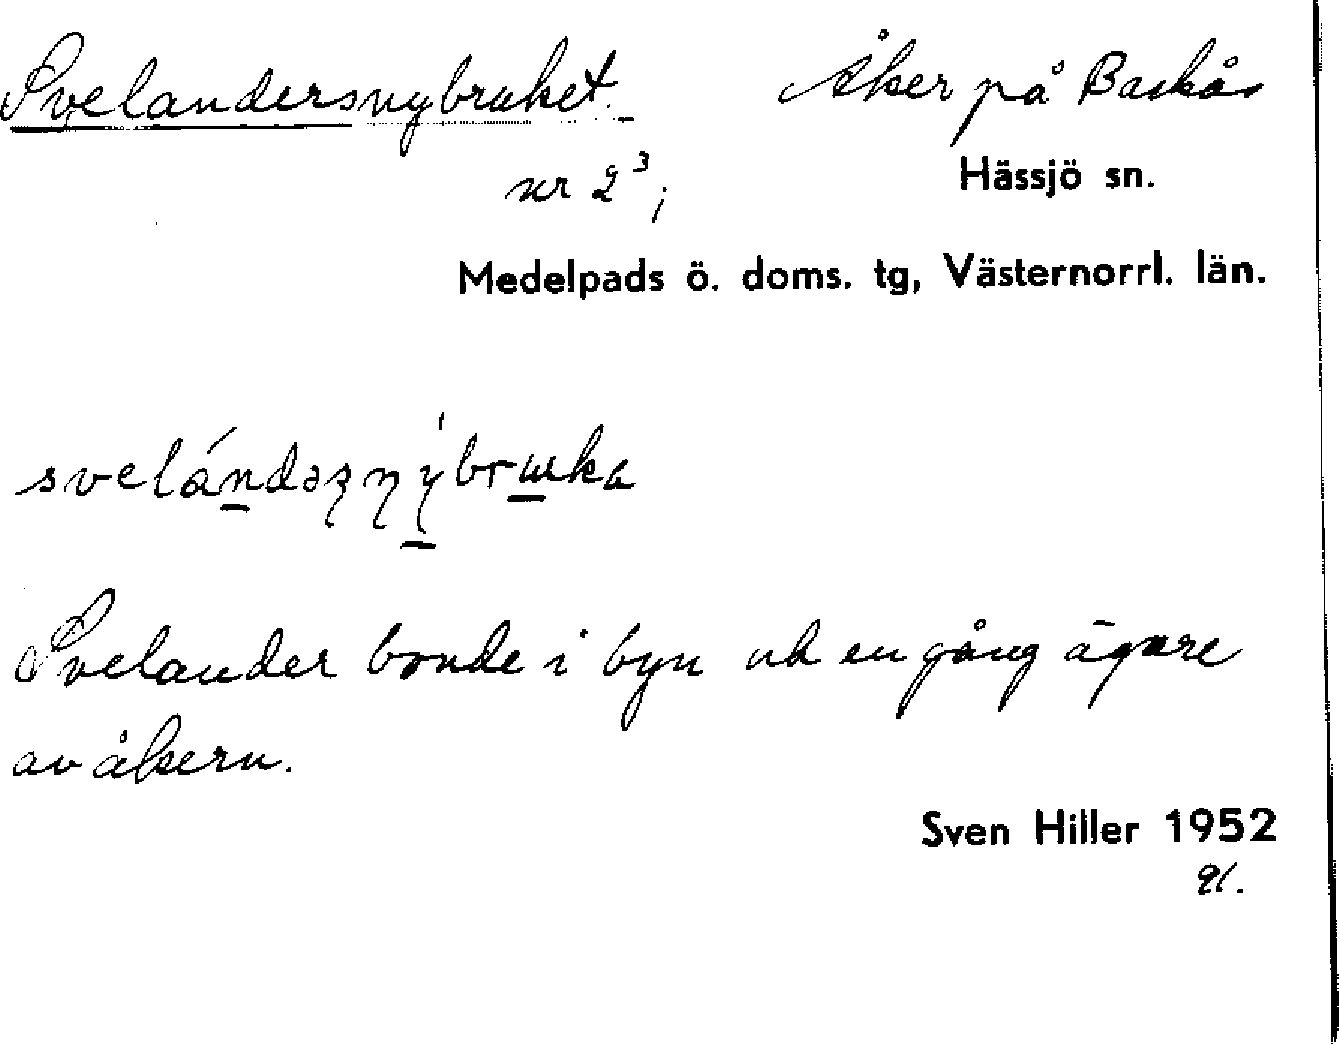 Svelandersnybruket. Åker på Baskås
nr 2³; Hässjö sn.
Medelpads ö. doms. tg, Västernorrl. län.
Svelander bonde i byn en gång ägare
av åkern.
Sven Hiller 1952